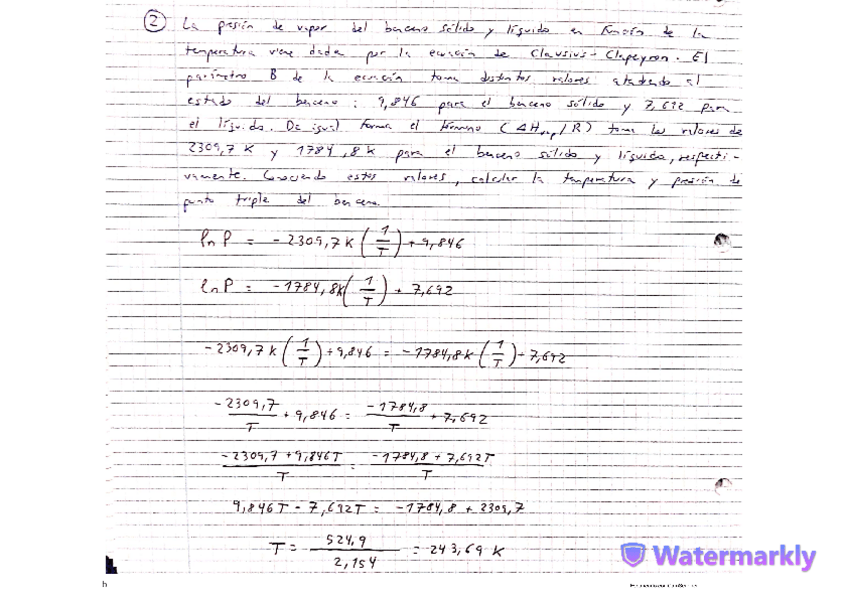 2 La presión de vapor del benceno sólido y líquido en función de la
temperatura viene dada por la ecuación de Clausius-Clapeyron. El
parámetro B de la ecuación toma distintos valores atendendo al
estado del benceno: 9,846 para el benceno sólido y 7,692 para
el líquido. De igual forma el término (ΔHvap/R) toma los valores de
2309,7 K y 1784,8 K para el benceno sólido y líquido, respecti-
vamente. Conociendo estos valores, calcular la temperatura y presión de
punto triple del benceno
ln P = -2309,7 K (1/T) + 9,846
ln P = -1784,8K (1/T) + 7,692
-2309,7 K (1/T) + 9,846 = -1784,8 K (1/T) + 7,692
-2309,7/T + 9,846 = -1784,8/T + 7,692
(-2309,7 + 9,846T)/T = (-1784,8 + 7,692T)/T
9,846T - 7,692T = -1784,8 + 2309,7
T = 524,9/2,154 = 243,69 K
Watermarkly